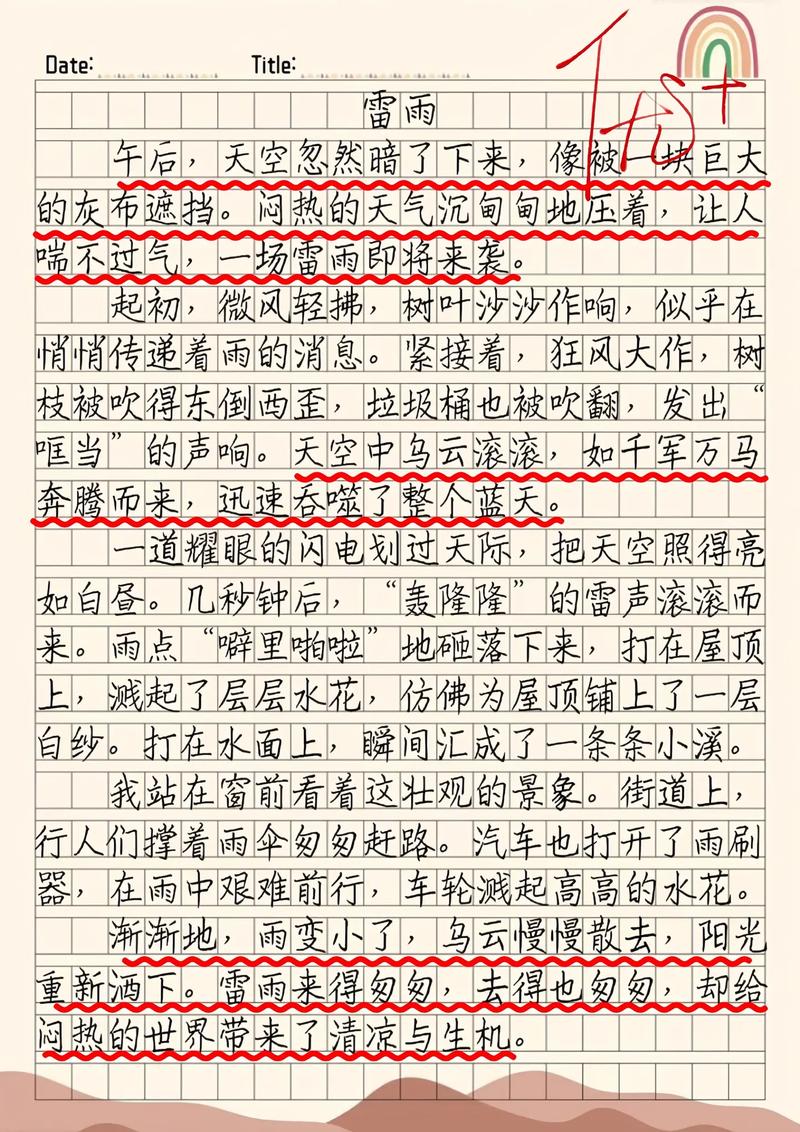 Date: Title:
雷雨
午后，天空忽然暗了下来，像被一块巨大
的灰布遮挡。闷热的天气沉甸甸地压着，让人
喘不过气，一场雷雨即将来袭。
起初，微风轻拂，树叶沙沙作响，似乎在
悄悄传递着雨的消息。紧接着，狂风大作，树
枝被吹得东倒西歪，垃圾桶也被吹翻，发出“
哐当”的声响。天空中乌云滚滚，如千军万马
奔腾而来，迅速吞噬了整个蓝天。
一道耀眼的闪电划过天际，把天空照得亮
如白昼。几秒钟后，“轰隆隆”的雷声滚滚而
来。雨点“噼里啪啦”地砸落下来，打在屋顶
上，溅起了层层水花，仿佛为屋顶铺上了一层
白纱。打在水面上，瞬间汇成了一条条小溪。
我站在窗前看着这壮观的景象。街道上，
行人们撑着雨伞匆匆赶路。汽车也打开了雨刷
器，在雨中艰难前行，车轮溅起高高的水花。
渐渐地，雨变小了，乌云慢慢散去，阳光
重新洒下。雷雨来得匆匆，去得也匆匆，却给
闷热的世界带来了清凉与生机。